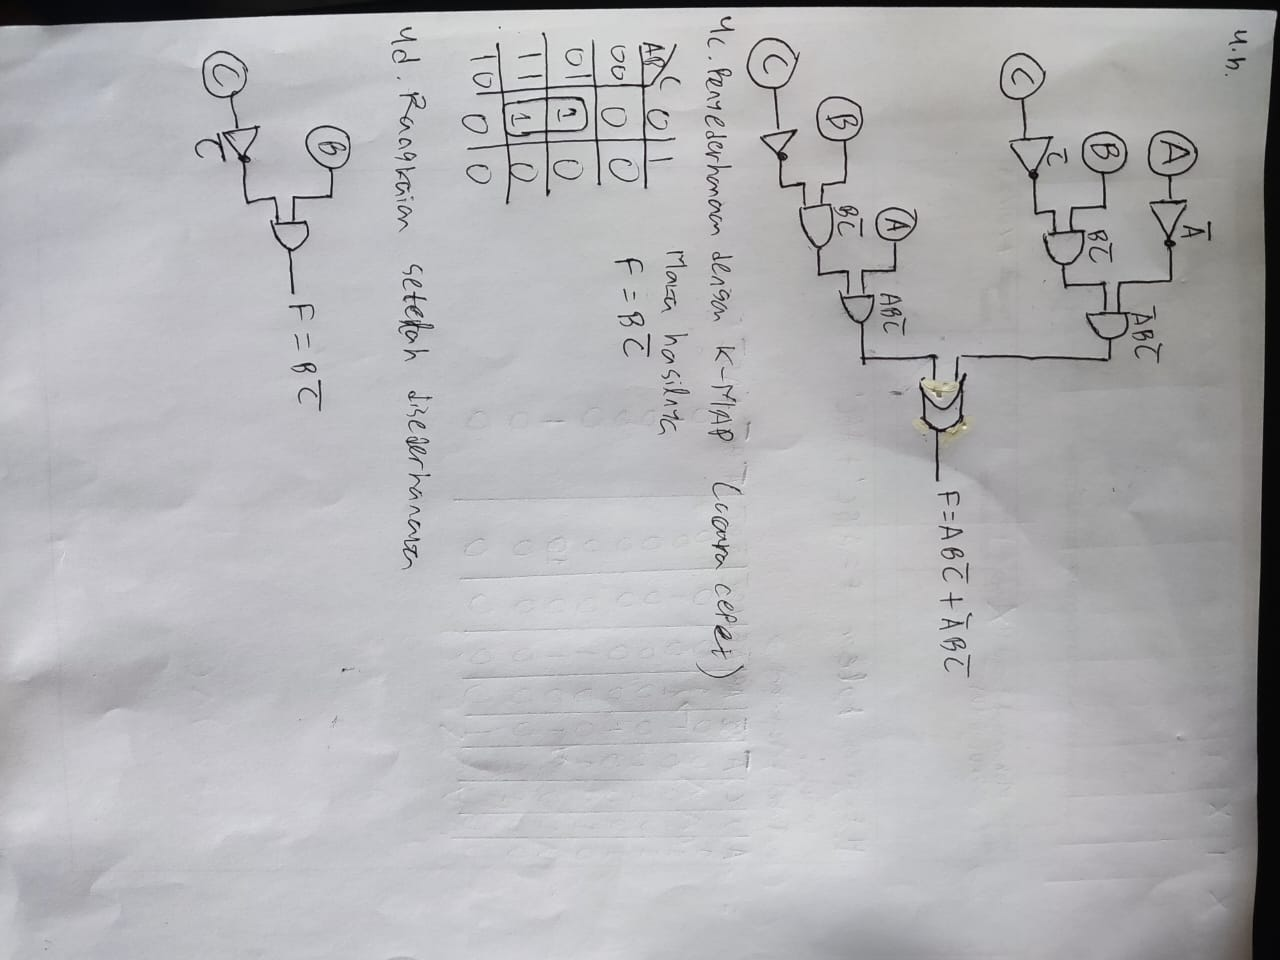 4.b.
A
Ā
B
C
C̅
BC̅
ĀBC̅
F=ABC̅+ĀBC̅
A
B
C
BC̅
ABC̅
4c. Penyederhanaan dengan K-MAP (cara cepet)
AB C 0 1
00 0 0
01 1 0
11 1 0
10 0 0
Maka hasilnya
F = BC̅
4d. Rangkaian setelah disederhanakan
B
C
C̅
F = BC̅